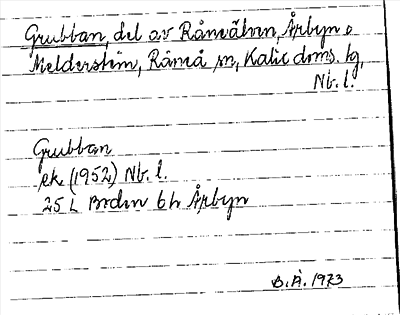 Grubban, del av Råneälven, Årbyn o
Melderstein, Råneå sn, Kalix doms. tg,
Nb. l.
Grubban
ek. (1952) Nb. l.
25 L Boden 6 h Årbyn
B.Å. 1973